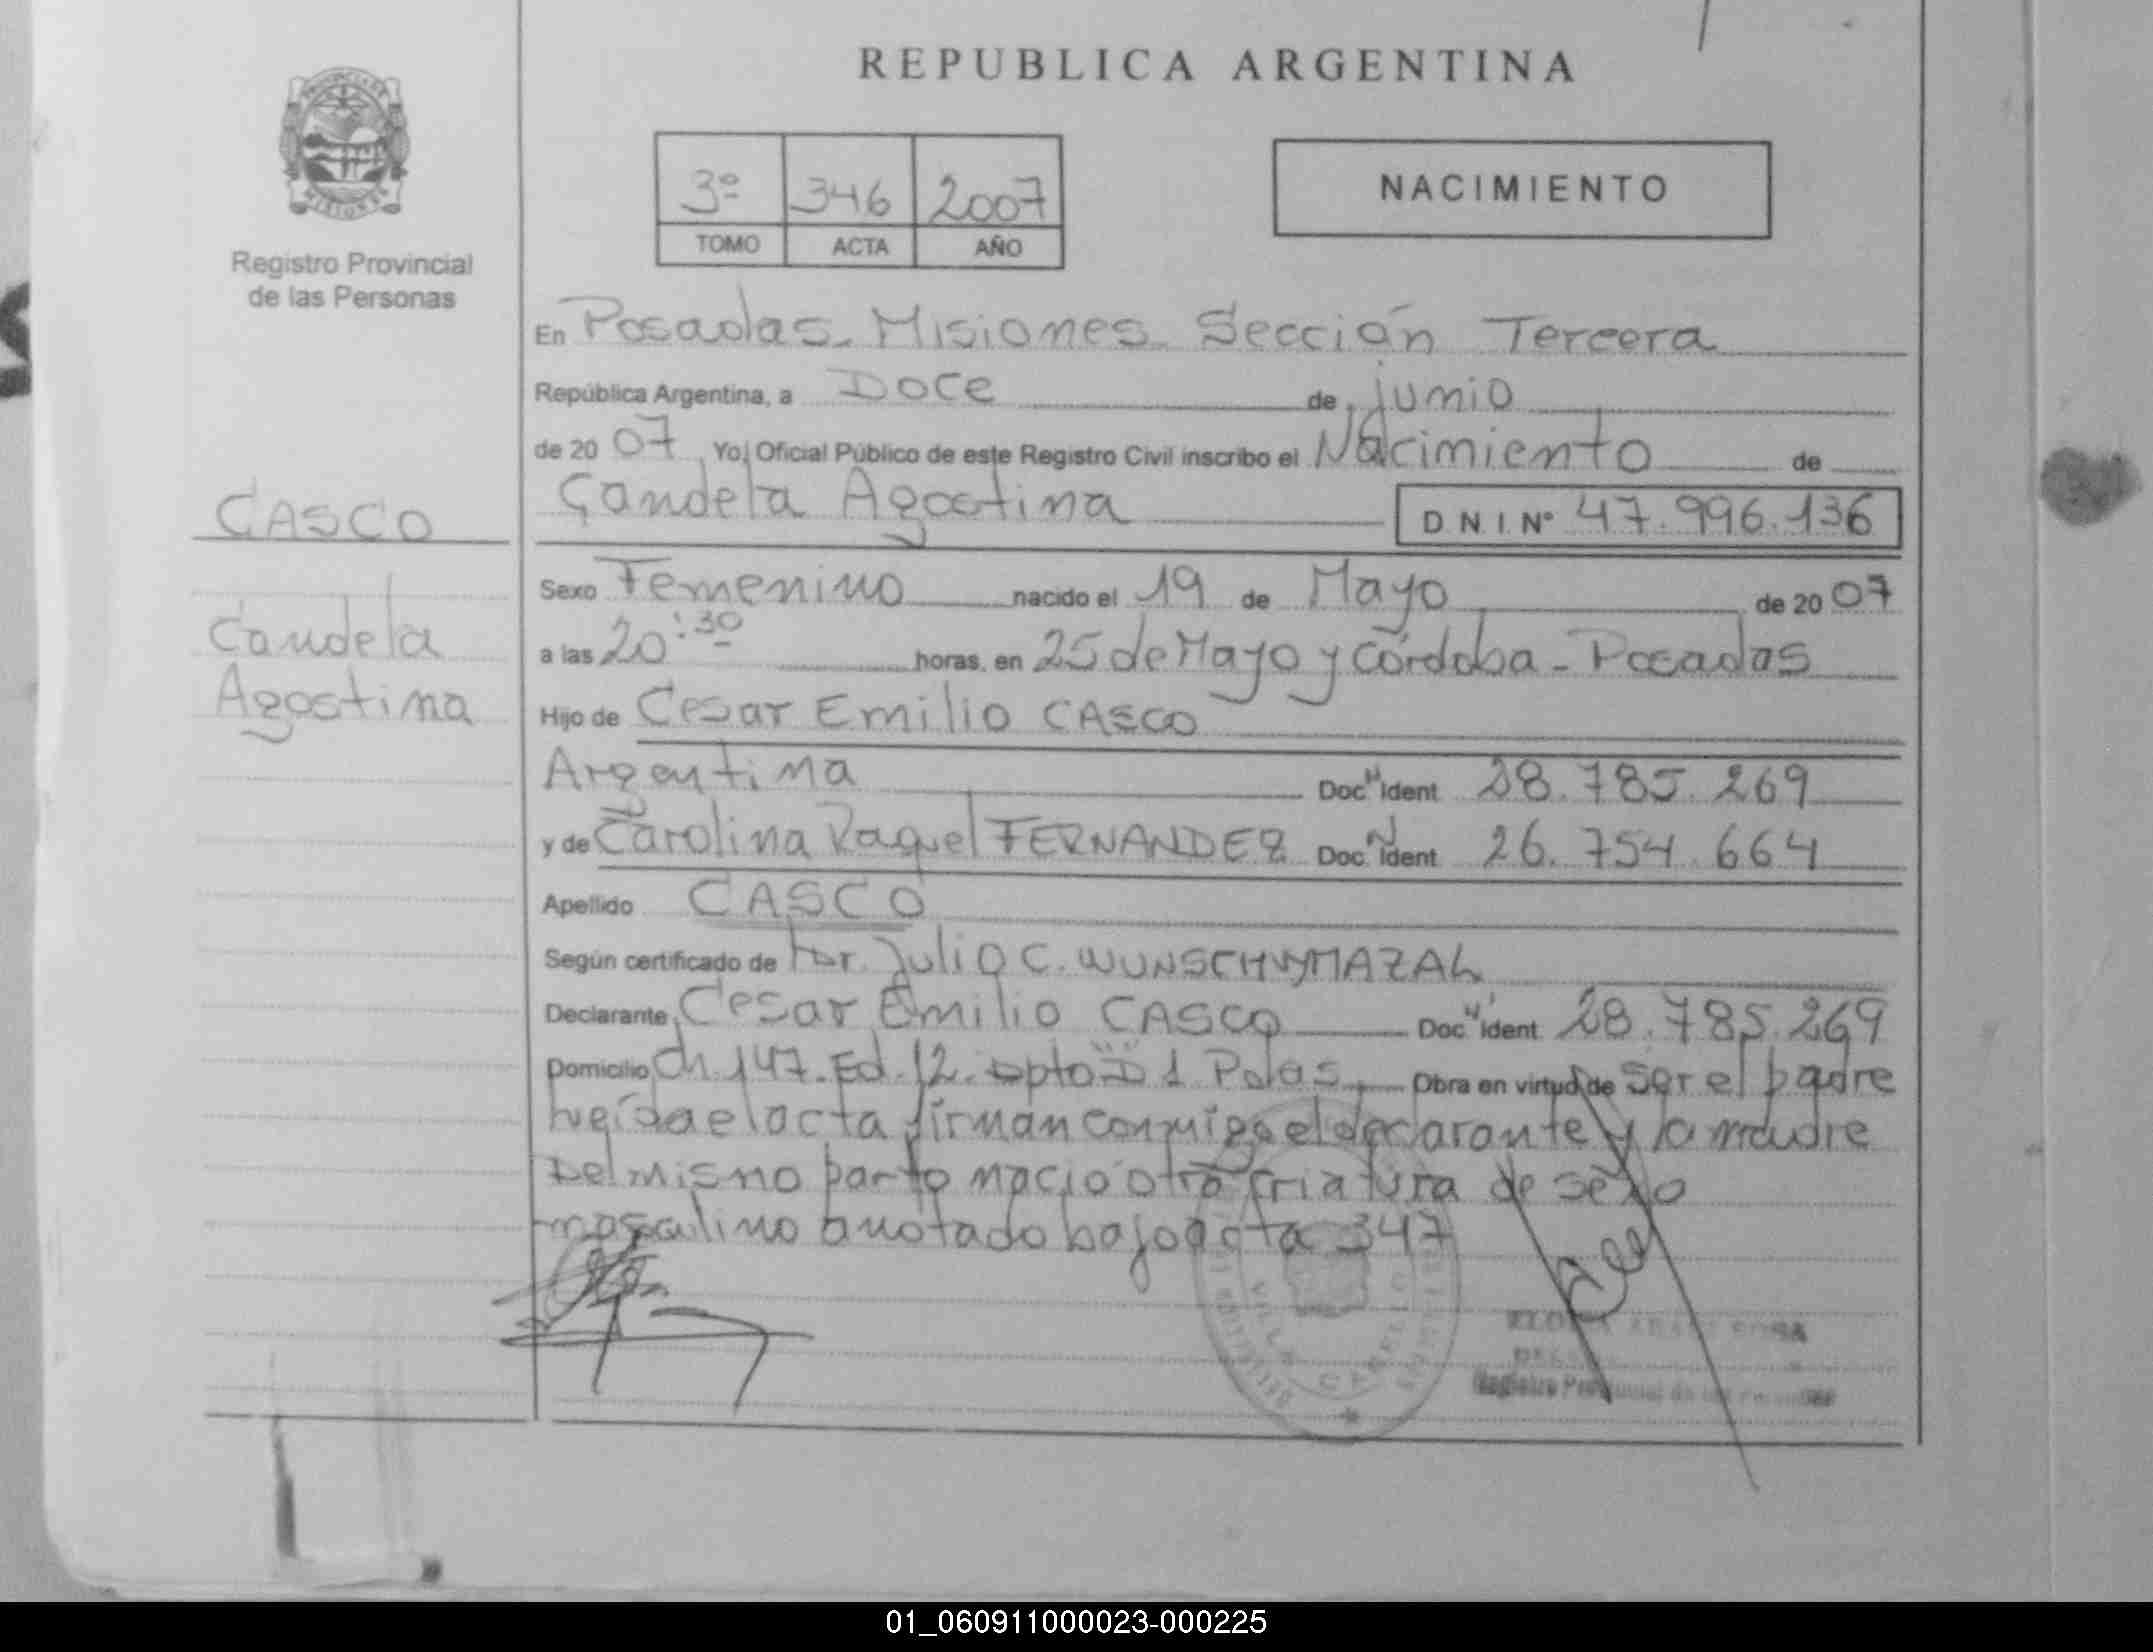 REPUBLICA ARGENTINA
PROVINCIA DE
MISIONES
Registro Provincial
de las Personas
3º 346 2007
TOMO ACTA AÑO
NACIMIENTO
En Posadas - Misiones - Sección Tercera
República Argentina, a Doce de junio
de 20 07 Yo, Oficial Público de este Registro Civil inscribo el Nacimiento de
CASCO
Candela Agostina D.N.I. Nº 47.996.136
Sexo Femenino nacido el 19 de Mayo de 20 07
Candela
Agostina
a las 20:30 horas, en 25 de Mayo y Córdoba - Posadas
Hijo de Cesar Emilio CASCO
Argentina Doc. Ident. 28.785.269
y de Carolina Raquel FERNANDEZ Doc. Ident. 26.754.664
Apellido CASCO
Según certificado de Dr. Julio C. WUNSCH
Declarante Cesar Emilio CASCO Doc. Ident. 28.785.269
Domicilio Ch. 147. Ed. 12. Dpto "D" 1 Pdas. Obra en virtud de ser el padre
Leída el acta firman conmigo el declarante y la madre
Del mismo parto nació otra criatura de sexo
masculino anotado bajo acta 347
VILLA CABELLO
Registro Provincial de las Personas
01_060911000023-000225